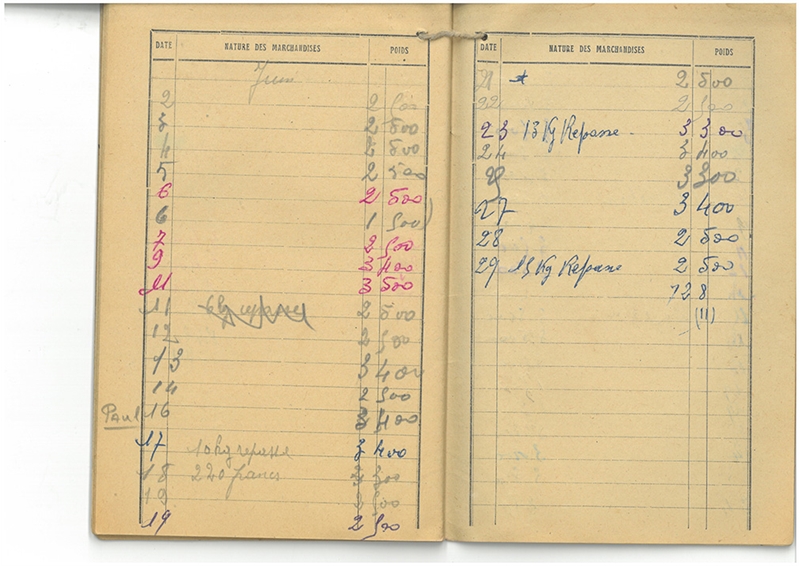 DATE NATURE DES MARCHANDISES POIDS
Juin
2 2 500
3 2 500
4 2 500
5 2 500
6 2 500
6 1 500
7 2 500
9 3 400
11 3 500
11 6 kg repasse 2 500
12 2 500
13 3 400
14 2 500
Paul 16 3 400
17 10 kg repasse 3 400
18 220 francs 300
19 2 500
19 2 500
DATE NATURE DES MARCHANDISES POIDS
21 2 500
22 2 500
23 13 Kg Repasse 3 300
24 3 400
25 3 300
27 3 400
28 2 500
29 13 Kg Repasse 2 500
72 8
(11)